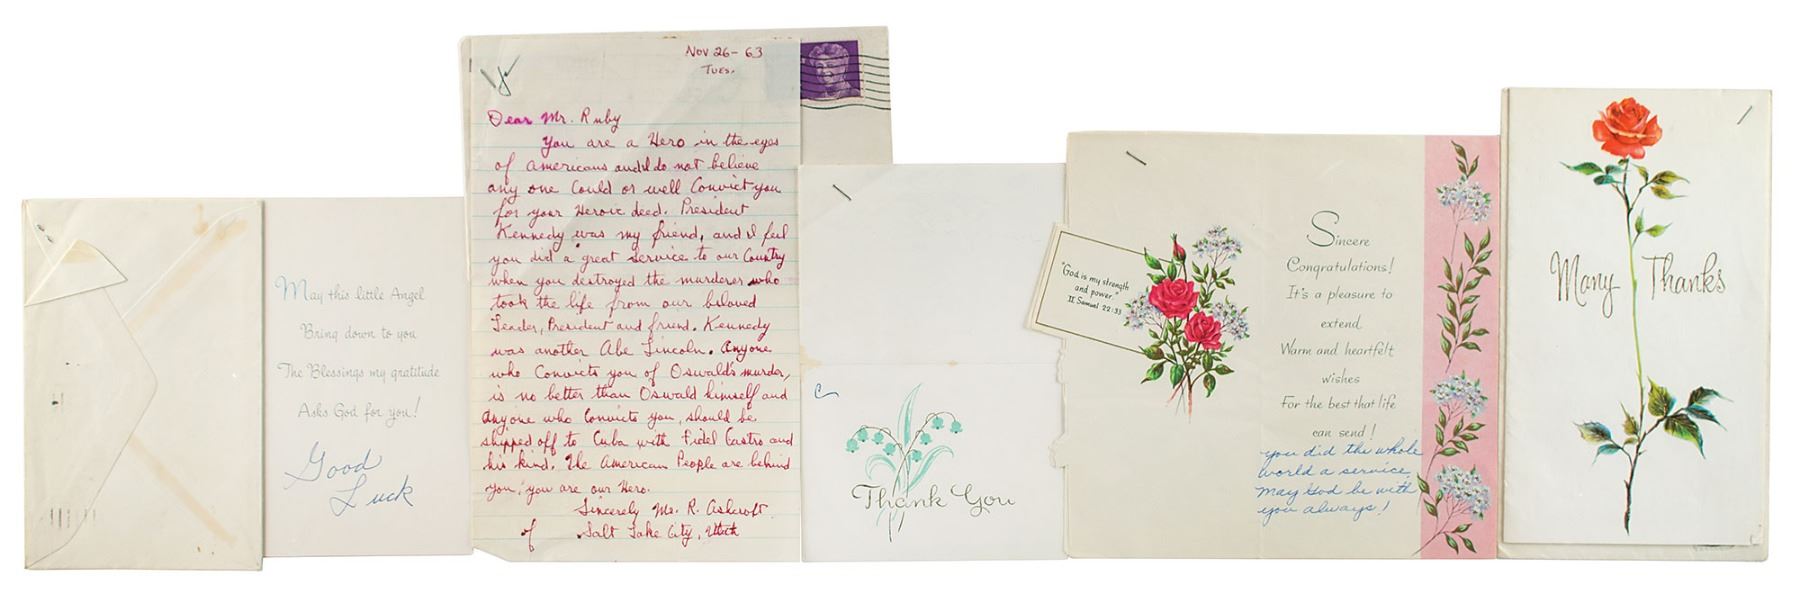 May this little Angel
Bring down to you
The Blessings my gratitude
Asks God for you!
Good
Luck
Nov 26-63
Tues.
Dear Mr. Ruby
You are a Hero in the eyes
of Americans and I do not believe
any one Could or well Convict you
for your Heroic deed. President
Kennedy was my friend, and I feel
you did a great service to our Country
when you destroyed the murderer who
took the life from our beloved
Leader, President and friend. Kennedy
was another Abe Lincoln. Anyone
who Convicts you of Oswald's murder,
is no better than Oswald himself and
Anyone who Convicts you, should be
shipped off to Cuba with Fidel Castro and
his kind. The American People are behind
you, you are our Hero.
Sincerely R. Ashcroft
of Salt Lake City, Utah
Thank You
"God is my strength
and power."
II Samuel 22:33
Sincere
Congratulations!
It's a pleasure to
extend
Warm and heartfelt
wishes
For the best that life
can send!
you did the whole
world a service
May God be with
you always!
Many Thanks